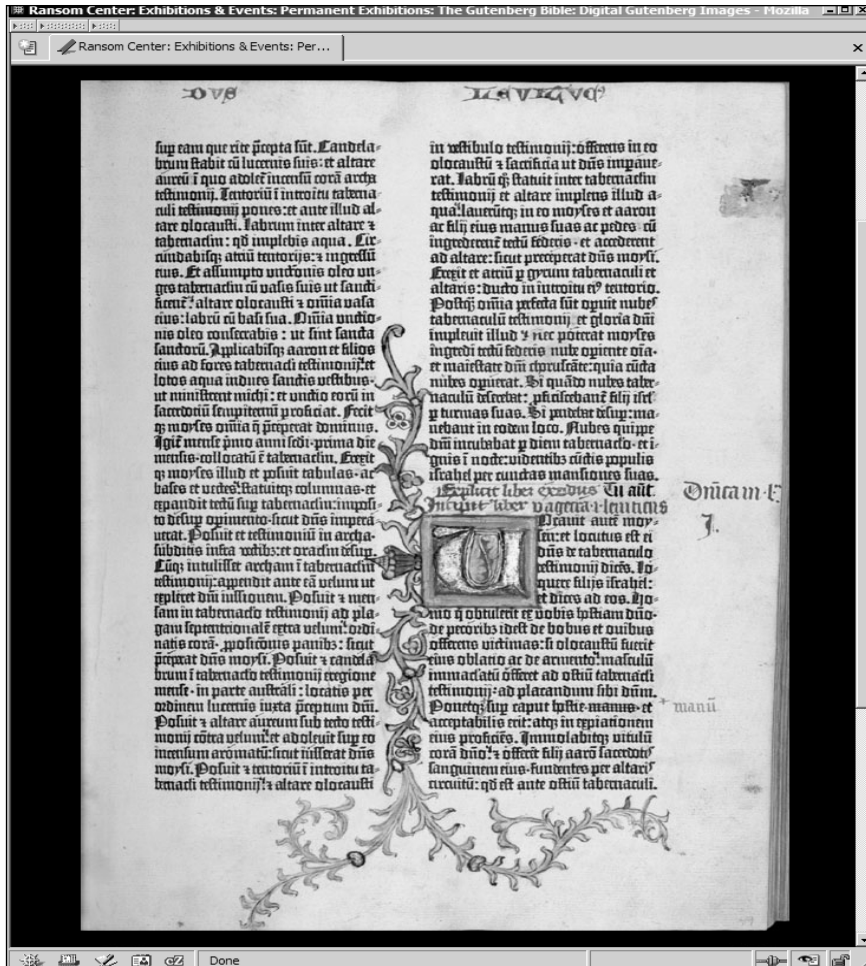 Ransom Center: Exhibitions & Events: Permanent Exhibitions: The Gutenberg Bible: Digital Gutenberg Images - Mozilla
Ransom Center: Exhibitions & Events: Per...
DVS
sup eam que rite p̄cepta sūt. Candela-
brum stabit cū lucernis suis: et altare
aureū ī quo adoleť incensū corā archa
testimonij. Tentoriū ī introitu taberna-
culi testimonij pones: et ante illud al-
tare olocausti. Labrum inter altare ⁊
tabernaclm: qđ implebis aqua. Cir-
cundabisqȝ atriū tentorijs: ⁊ ingressū
eius. Et assumpto unctionis oleo un-
ges tabernaclm cū vasis suis ut sancti-
ficent̄: altare olocausti ⁊ om̄ia vasa
eius: labrū cū basi sua. Om̄ia unctio-
nis oleo consecrabis: ut sint sancta
sanctorū. Applicabisqȝ aaron et filios
eius ad fores tabernacli testimonij: et
lotos aqua indues sanctis vestibus-
ut ministrent michi: et unctio eorū in
sacerdotiū sempiternū proficiat. Fecit
qȝ moyses om̄ia q̄ p̄ceperat dominus.
Igiť mense p̄mo anni scd̄i·prima die
mensis·collocatū ē tabernaclm. Erexit
qȝ moyses illud et posuit tabulas·ac
bases et vectes: statuitqȝ columnas·et
expandit tectū sup tabernaclm: imposi-
to desup opimento·sicut dn̄s impera-
uerat. Posuit et testimoniū in archa·
subditis infra vectibȝ: et oraclm desup.
Cūqȝ intulisset archam ī tabernaclm
testimonij: appendit ante eā velum ut
expleret dn̄i iussionem. Posuit ⁊ men-
sam in tabernaclo testimonij ad pla-
gam septentrionalē extra velum: ordi-
natis corā·ppositionis panibȝ: sicut
p̄ceperat dn̄s moysi. Posuit ⁊ candela-
brum ī tabernaclo testimonij eregione
mense·in parte australi: locatis per
ordinem lucernis iuxta p̄ceptum dn̄i.
Posuit ⁊ altare aureum sub tecto testi-
monij cōtra velum: et adoleuit sup eo
incensum aromatū: sicut iusserat dn̄s
moysi. Posuit ⁊ tentoriū ī introitu ta-
bernacli testimonij: ⁊ altare olocausti
LEVITICVS
in vestibulo testimonij: offerens in eo
olocaustū ⁊ sacrificia ut dn̄s impaue-
rat. Labrū qȝ statuit inter tabernaclm
testimonij et altare implens illud a-
qua: lauerūtqȝ in eo moyses et aaron
ac filij eius manus suas ac pedes·cū
ingrederent̄ tectū federis·et accederent
ad altare: sicut preceperat dn̄s moysi.
Erexit et atriū p gyrum tabernaculi et
altaris: ducto in introitu eiꝰ tentorio.
Postqȝ om̄ia perfecta sūt opuit nubes
tabernaculū testimonij et gloria dn̄i
impleuit illud ⁊ nec poterat moyses
ingredi tectū federis nube opiente oīa·
et maiestate dn̄i choruscāte: quia cūcta
nubes opuerat. Si quādo nubes taber-
naculū deserebat: pficiscebant̄ filij isrl̄
p turmas suas. Si pendebat desup: ma-
nebant in eodem loco. Nubes quippe
dn̄i incubabat p diem tabernaclo·et i-
gnis ī nocte: videntibȝ cūctis populis
israhel per cunctas mansiones suas.
Explicit liber exodus
Incipit liber vagecra·i·leuiticus
VOcauit autē moy-
sen: et locutus est ei
dn̄s de tabernaculo
testimonij dicēs. Lo-
quere filijs israhel:
et dices ad eos. Ho-
mo q̄ obtulerit ex vobis hostiam dn̄o·
de pecoribȝ idest de bobus et ouibus
offerens victimas: si olocaustū fuerit
eius oblatio ac de armento: masculū
immaculatū offeret ad ostiū tabernacli
testimonij: ad placandum sibi dn̄m.
Ponetqȝ sup caput hostie manus·et
acceptabilis erit: atqȝ in expiationem
eius proficiēs. Immolabitqȝ vitulū
corā dn̄o: ⁊ offerēt filij aarō sacerdotꝭ
sanguinem eius·fundentes per altarꝭ
circuitū: qđ est ante ostiū tabernaculi.
J.
manū
Done